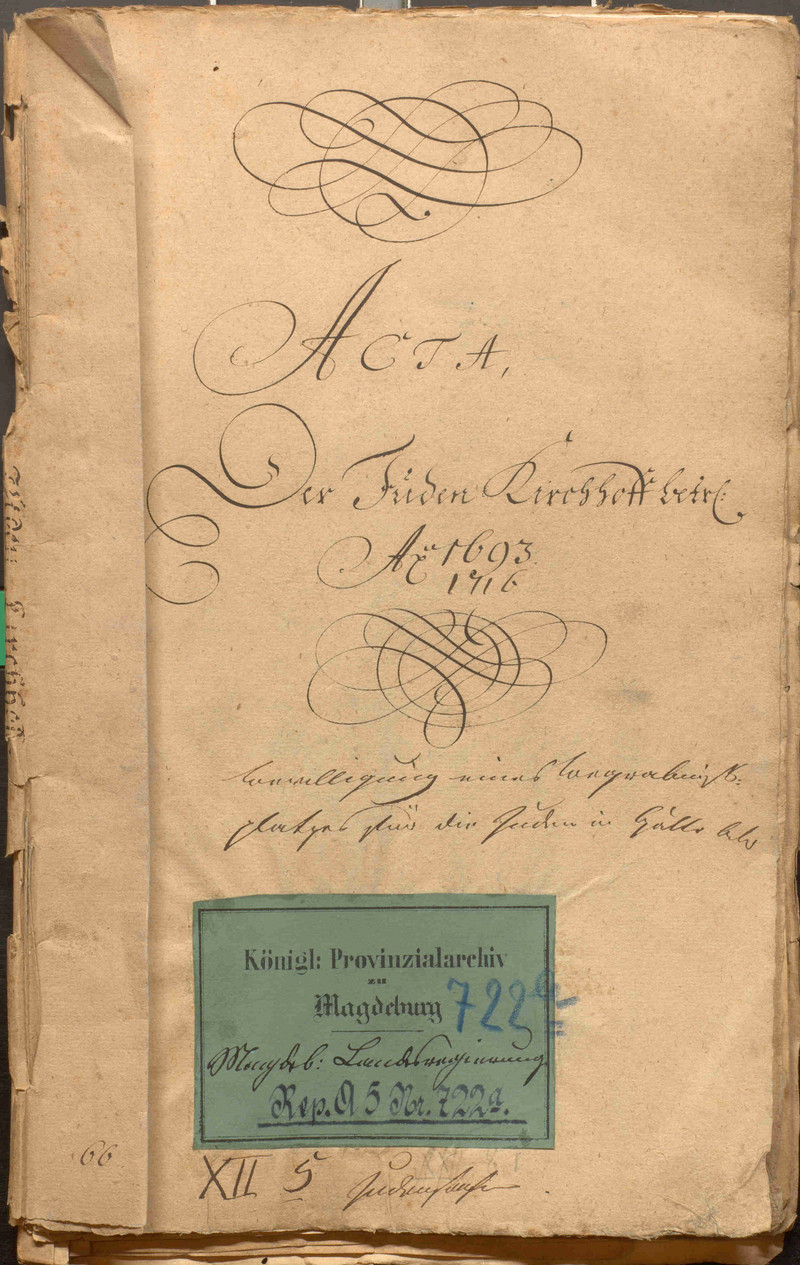 ACTA,
Der Jüden Kirchhoff betrf:
Ao 1693.
1716
bewilligung eines begräbniß-
platzes für die Juden in Halle betr
Königl: Provinzialarchiv
zu
Magdeburg
722a
Magdeb: Landesregierung
Rep. A 5 Nr. 722a.
66
XII 5 Judensache